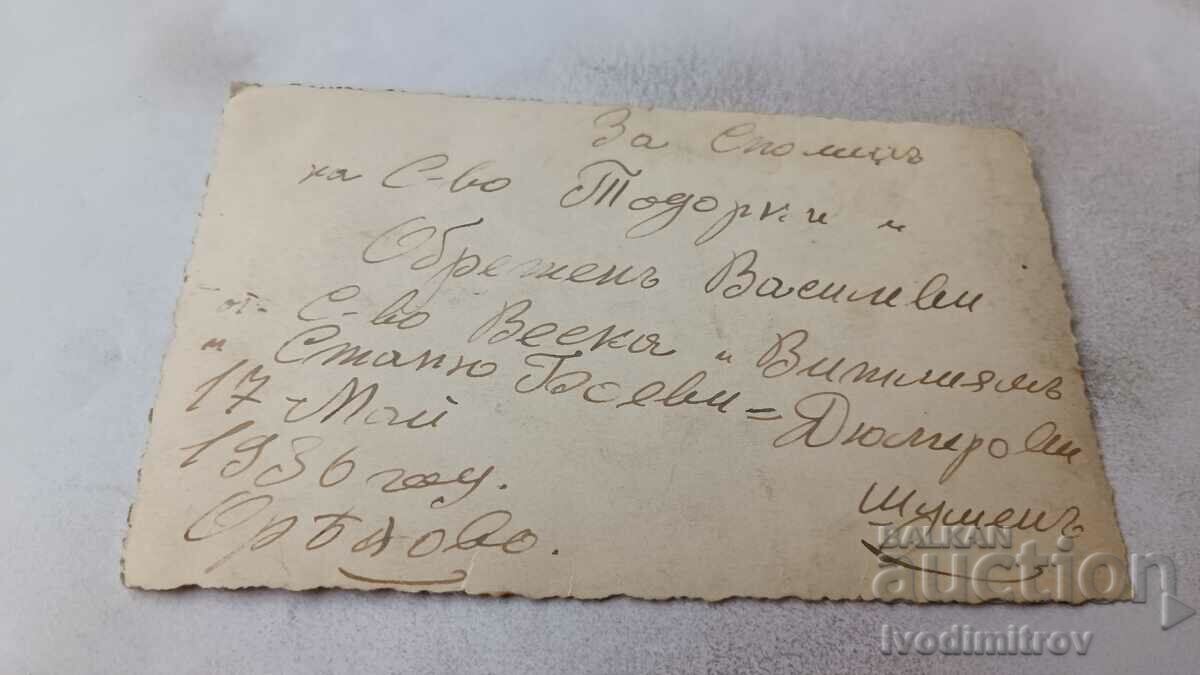 За Споменъ
на С-во Тодорки и
Обреженъ Василеви
от С-во Веска и Вижлиямъ
и Станю Боеви = Дюлгерови
17 - Май
1936 год.
Орѣхово.
Шуменъ
BALKAN
auction
Ivodimitrov